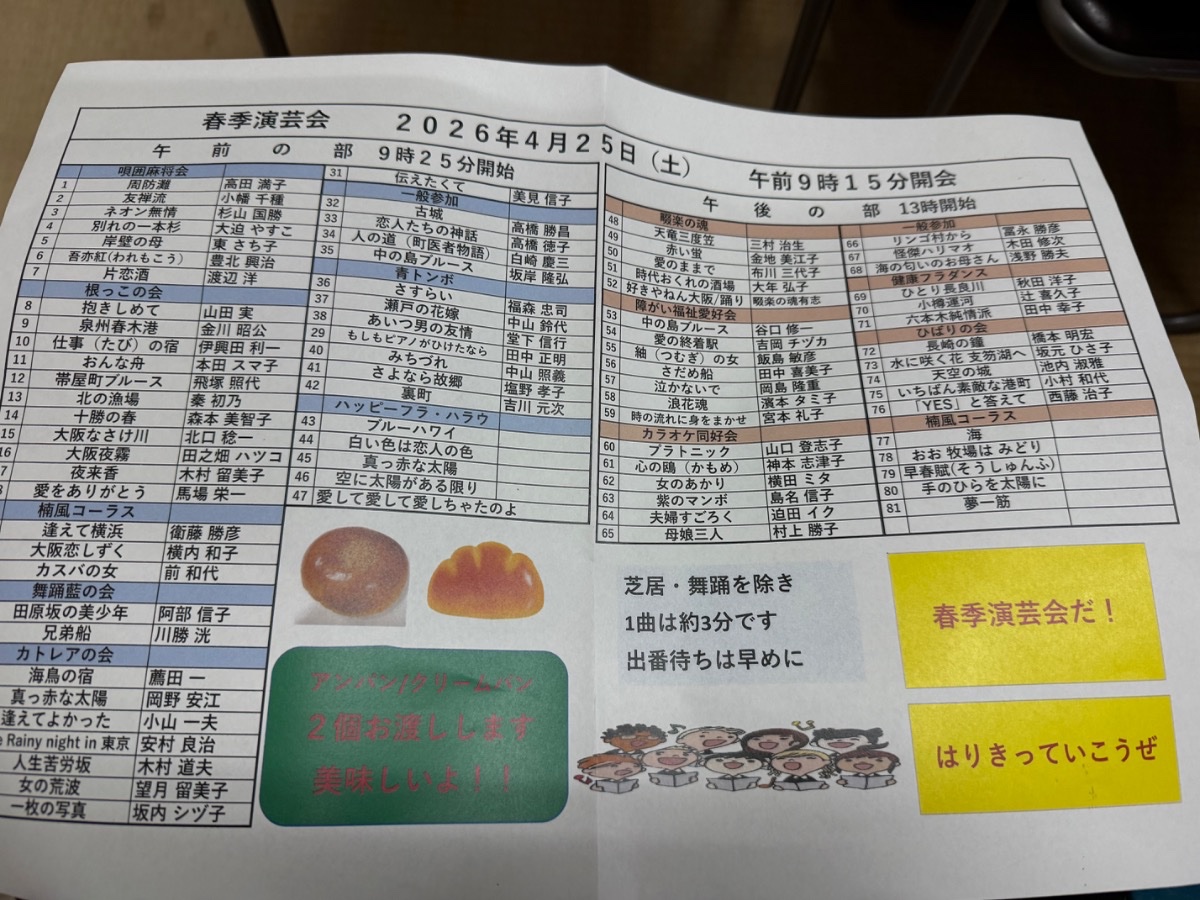 春季演芸会 2026年4月25日（土） 午前9時15分開会
午前の部 9時25分開始
唄囲麻将会
1 周防灘 高田 満子
2 友禅流 小幡 千種
3 ネオン無情 杉山 国勝
4 別れの一本杉 大迫 やすこ
5 岸壁の母 東 さち子
6 吾亦紅(われもこう) 豊北 興治
7 片恋酒 渡辺 洋
根っこの会
8 抱きしめて 山田 実
9 泉州春木港 金川 昭公
10 仕事（たび）の宿 伊興田 利一
11 おんな舟 本田 スマ子
12 帯屋町ブルース 飛塚 照代
13 北の漁場 秦 初乃
14 十勝の春 森本 美智子
15 大阪なさけ川 北口 稔一
16 大阪夜霧 田之畑 ハツコ
7 夜来香 木村 留美子
愛をありがとう 馬場 栄一
楠風コーラス
逢えて横浜 衛藤 勝彦
大阪恋しずく 横内 和子
カスバの女 前 和代
舞踊藍の会
田原坂の美少年 阿部 信子
兄弟船 川勝 洸
カトレアの会
海鳥の宿 薦田 一
真っ赤な太陽 岡野 安江
逢えてよかった 小山 一夫
e Rainy night in 東京 安村 良治
人生苦労坂 木村 道夫
女の荒波 望月 留美子
一枚の写真 坂内 シヅ子
31 伝えたくて 美見 信子
一般参加
32 古城 高橋 勝昌
33 恋人たちの神話 高橋 徳子
34 人の道（町医者物語） 白崎 慶三
35 中の島ブルース 坂岸 隆弘
青トンボ
36 さすらい 福森 忠司
37 瀬戸の花嫁 中山 鈴代
38 あいつ男の友情 堂下 信行
29 もしもピアノがひけたなら 田中 正明
40 みちづれ 中山 照義
41 さよなら故郷 塩野 孝子
42 裏町 吉川 元次
ハッピーフラ・ハラウ
43 ブルーハワイ
44 白い色は恋人の色
45 真っ赤な太陽
46 空に太陽がある限り
47 愛して愛して愛しちゃたのよ
午後の部 13時開始
啜楽の魂
48 天竜三度笠 三村 治生
49 赤い蛍 金地 美江子
50 愛のままで 布川 三代子
51 時代おくれの酒場 大年 弘子
52 好きやねん大阪/踊り 啜楽の魂有志
障がい福祉愛好会
53 中の島ブルース 谷口 修一
54 愛の終着駅 吉岡 チヅカ
55 紬（つむぎ）の女 飯島 敏彦
56 さだめ船 田中 喜美子
57 泣かないで 岡島 隆重
58 浪花魂 濱本 タミ子
59 時の流れに身をまかせ 宮本 礼子
カラオケ同好会
60 プラトニック 山口 登志子
61 心の鴎（かもめ） 神本 志津子
62 女のあかり 横田 ミタ
63 紫のマンボ 島名 信子
64 夫婦すごろく 迫田 イク
65 母娘三人 村上 勝子
一般参加
66 リンゴ村から 冨永 勝彦
67 怪傑ハリマオ 木田 修次
68 海の匂いのお母さん 浅野 勝夫
健康フラダンス
69 ひとり長良川 秋田 洋子
70 小樽運河 辻 喜久子
71 六本木純情派 田中 幸子
ひばりの会
72 長崎の鐘 橋本 明宏
73 水に咲く花 支笏湖へ 坂元 ひさ子
74 天空の城 池内 淑雅
75 いちばん素敵な港町 小村 和代
76 「YES」と答えて 西藤 治子
楠風コーラス
77 海
78 おお 牧場は みどり
79 早春賦(そうしゅんふ)
80 手のひらを太陽に
81 夢一筋
アンパン/クリームパン
2個お渡しします
美味しいよ！！
芝居・舞踊を除き
1曲は約3分です
出番待ちは早めに
春季演芸会だ！
はりきっていこうぜ